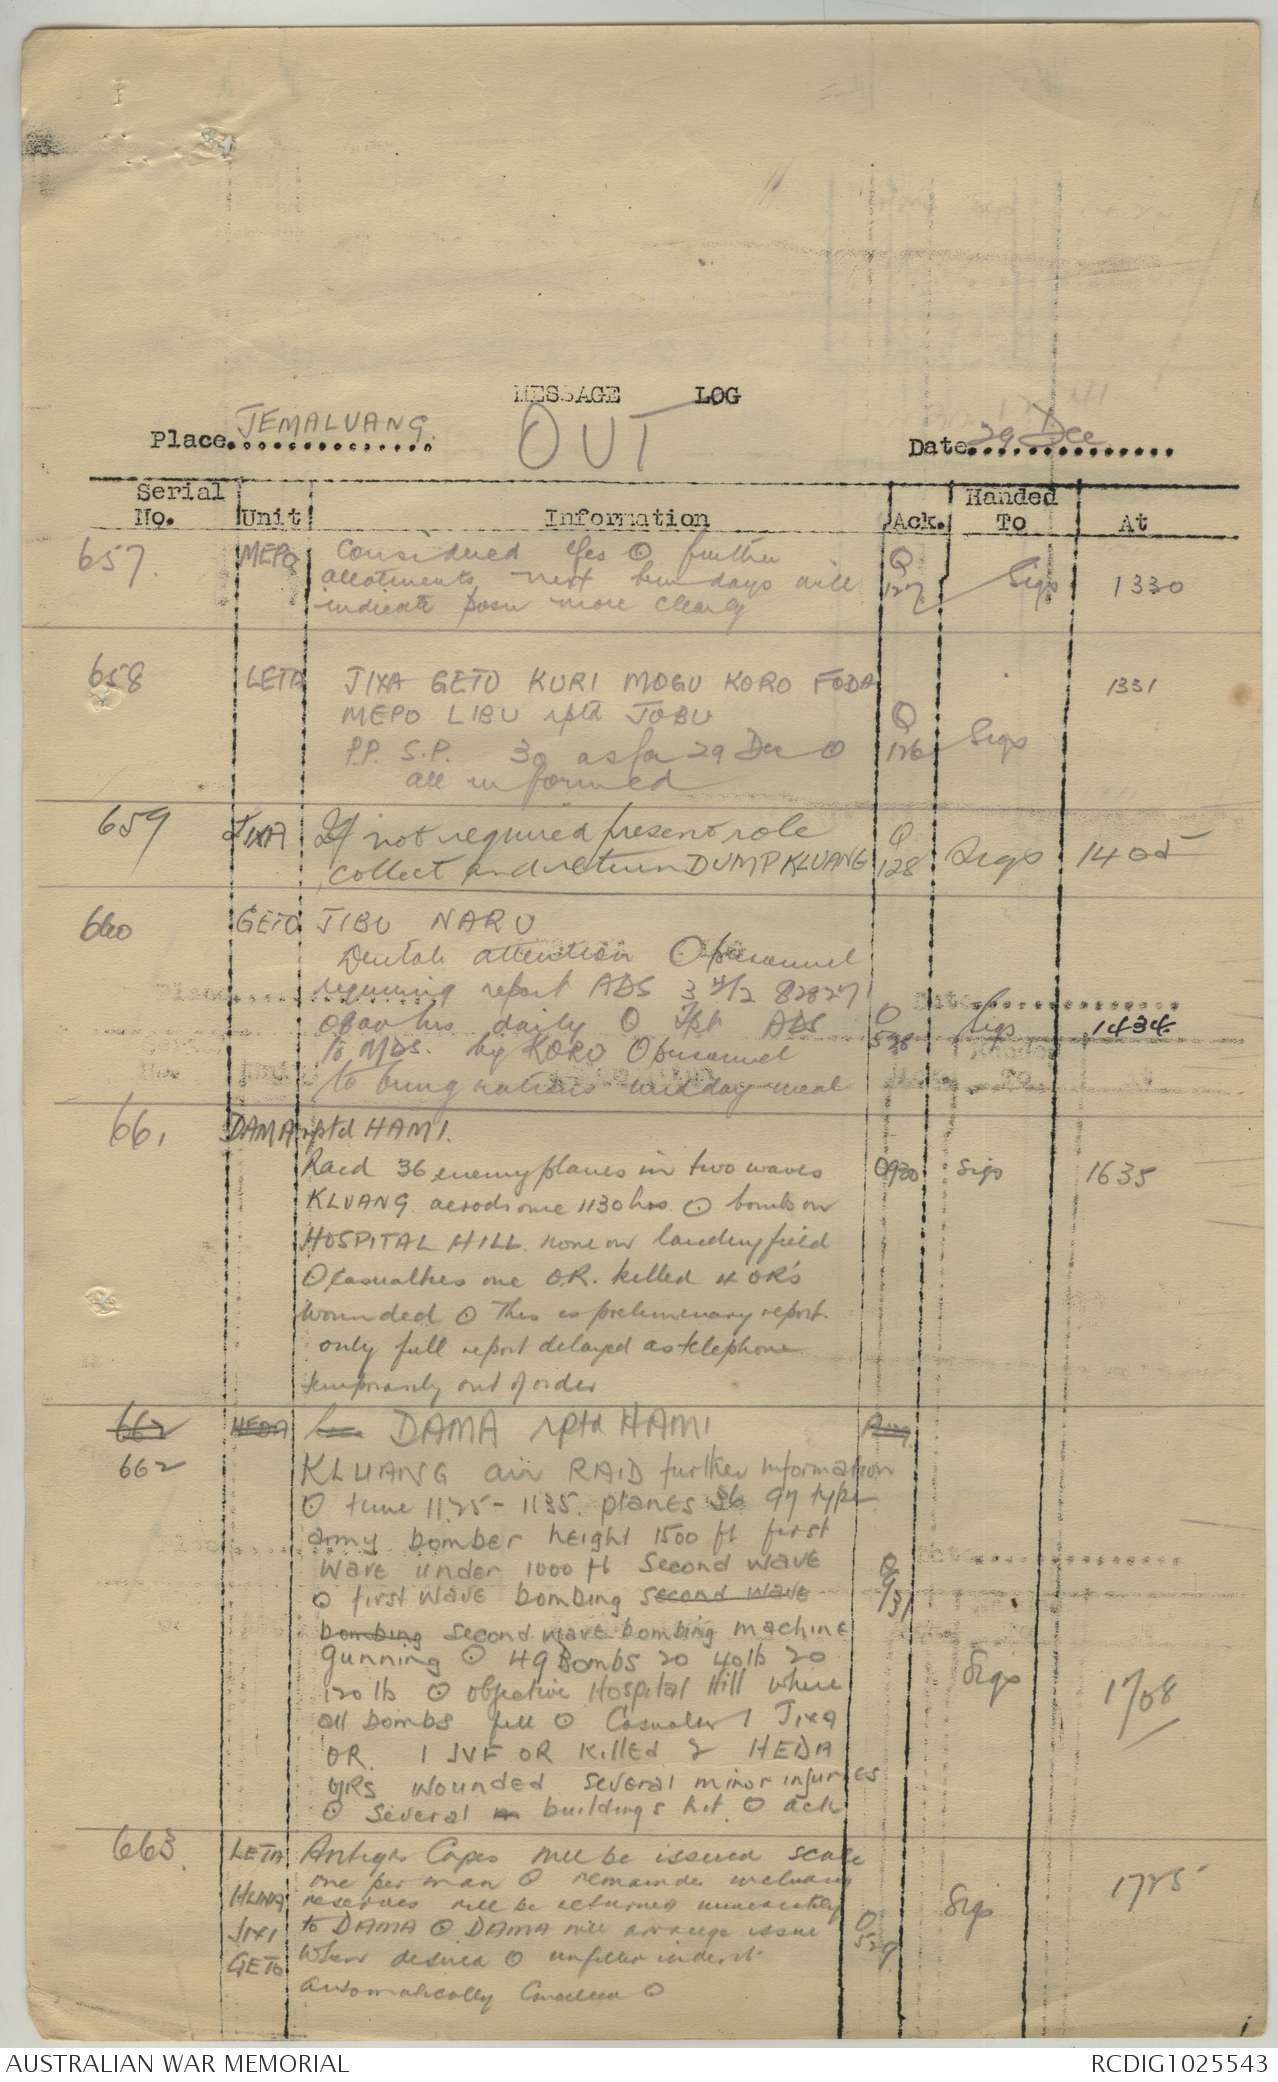 MESSAGE LOG
OUT
Place. JEMALUANG.
Date 29 Dec
Serial No. Unit Information Ack. Handed To At
657. MEPO Considered yes ⊙ further
allotments next few days will
indicate posn more clearly
Q 127 Sigs 1330
658 LETA JIXA GETO KURI MOGU KORO FODA
MEPO LIBU rptd JOBU
P.P. S.P. 30 as for 29 Dec ⊙
all informed
Q 126 Sigs 1331
659 JIXA If not required present role
collect and return DUMP KLUANG
Q 128 Sigs 1405
660 GETO JIBU NARU
Dental attention ⊙ personnel
requiring report ADS 82827
0900 hrs daily ⊙ Tpt ADS
to MDS. by KORO ⊙ personnel
to bring rations midday meal
O 528 Sigs 1434
661 DAMA rptd HAMI.
Raid 36 enemy planes in two waves
KLUANG aerodrome 1130 hrs. ⊙ bombs on
HOSPITAL HILL none on landing field
⊙ Casualties one O.R. killed 4 OR's
wounded ⊙ This is preliminary report
only full report delayed as telephone
temporarily out of order
O930 Sigs 1635
662 HEDA DAMA rptd HAMI
662 KLUANG air RAID further information
⊙ time 1125 - 1135. planes 36 97 type
army bomber height 1500 ft first
wave under 1000 ft second wave
⊙ first wave bombing second wave
bombing second wave bombing machine
gunning ⊙ 49 Bombs 20 40 lb 20
120 lb ⊙ objective Hospital Hill where
all bombs fell ⊙ Casualties 1 JIXA
OR 1 JVF OR killed 2 HEDA
ORs wounded several minor injuries
⊙ several buildings hit. ⊙ ack
O 931 Sigs 1708
663 LETA Antigas Capes will be issued scale
one per man ⊙ remainder including
reserves will be returned immediately
JIXI to DAMA ⊙ DAMA will arrange issue
GETO where desired ⊙ indent
automatically cancelled ⊙
O 529 Sigs 1725
AUSTRALIAN WAR MEMORIAL
RCDIG1025543